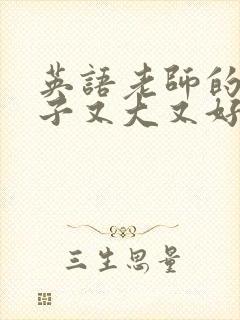 英語老師的
子又大又好
三生思量